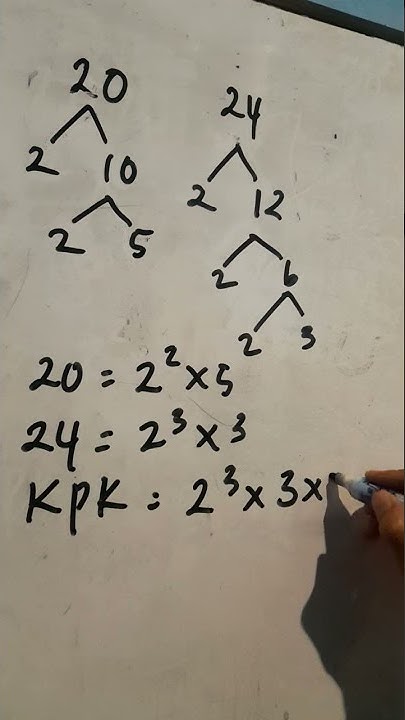 20 24
2 10 2 12
2 5 2 6
2 3
20 = 2² × 5
24 = 2³ × 3
KPK = 2³ × 3 ×